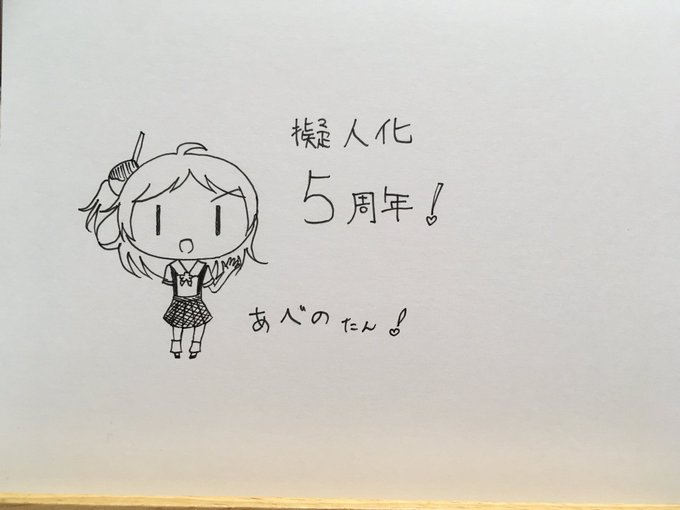 擬人化
5周年!
あべのたん!